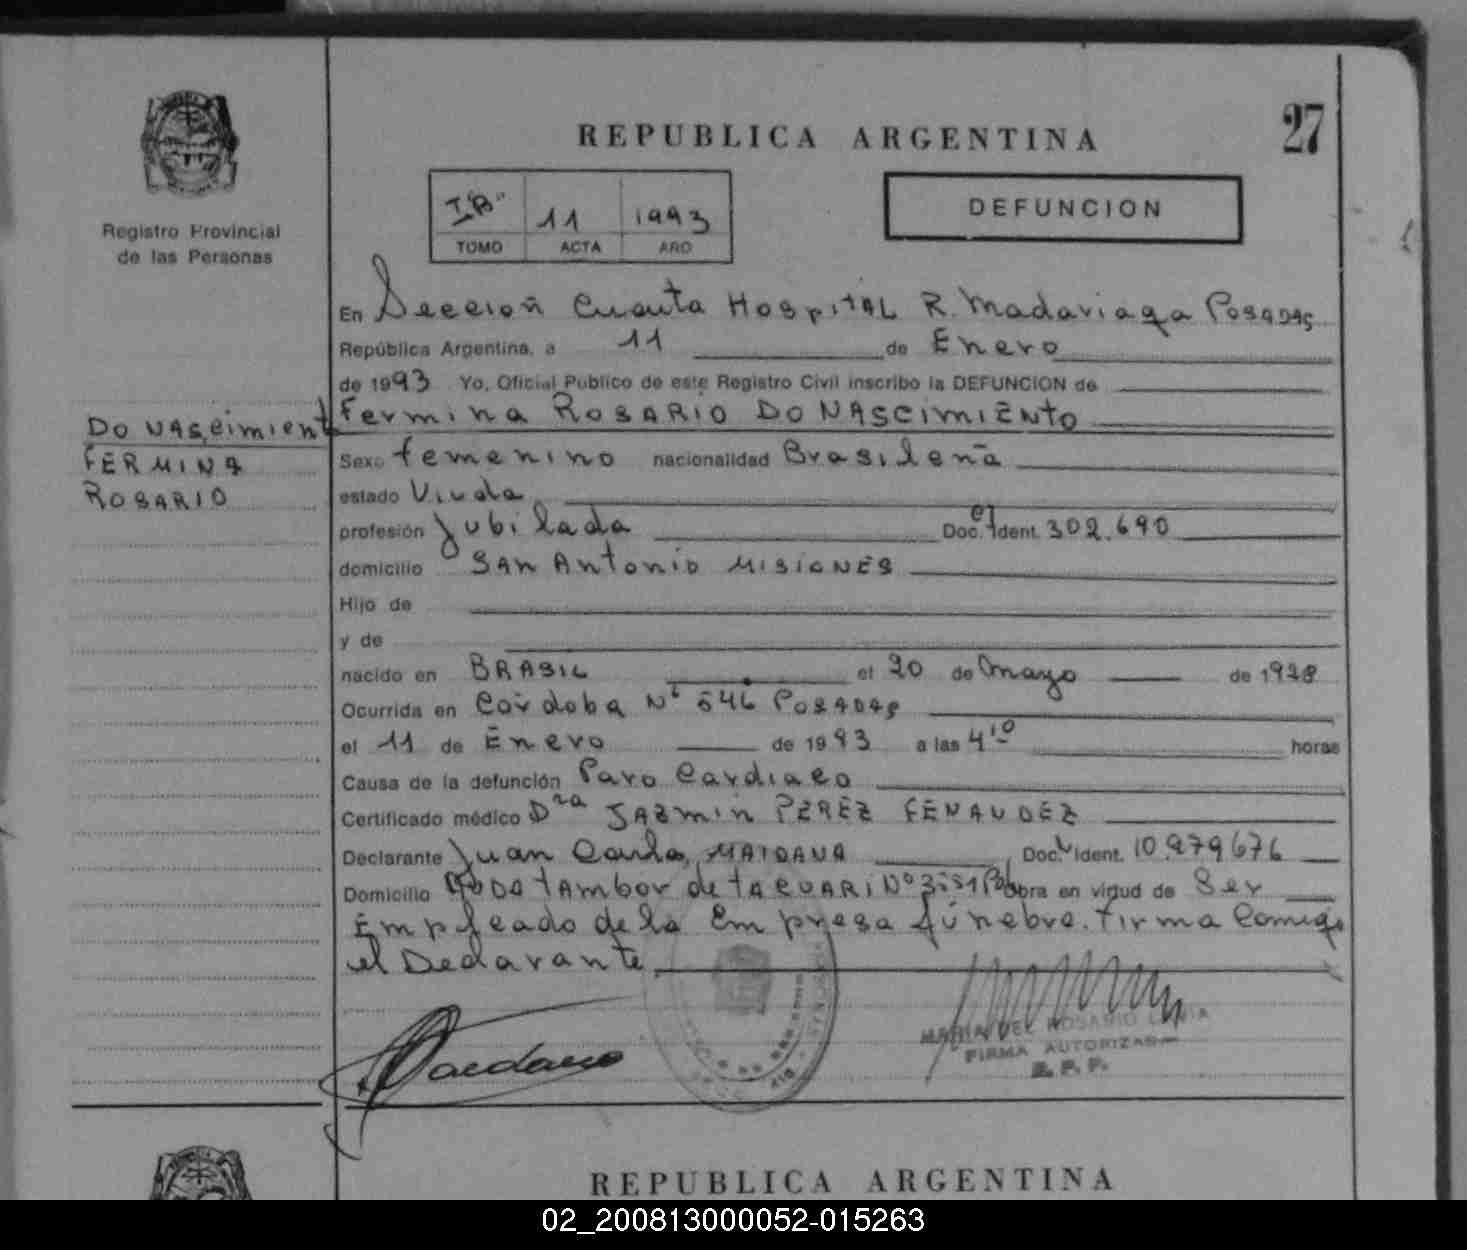 REPUBLICA ARGENTINA
27
I "B" 11 1993
TOMO ACTA AÑO
DEFUNCION
Registro Provincial
de las Personas
En Sección Cuarta Hospital R. Madariaga Posadas
República Argentina, a 11 de Enero
de 1993 Yo, Oficial Público de este Registro Civil inscribo la DEFUNCION de
Do Nascimiento
FERMINA
ROSARIO
Fermina ROSARIO DO NASCIMIENTO
Sexo femenino nacionalidad Brasileña
estado Viuda
profesión Jubilada Doc. CI Ident. 302.690
domicilio SAN Antonio MISIONES
Hijo de
y de
nacido en BRASIL el 20 de Mayo de 1928
Ocurrida en Córdoba N° 546 POSADAS
el 11 de Enero de 1993 a las 4 10 horas
Causa de la defunción Paro Cardiaco
Certificado médico Dra JAZMIN PEREZ FENANDEZ
Declarante Juan Carlos MAIDANA Doc. Ident. 10.979676
Domicilio tAMbor de tACUARI N° Obra en virtud de Ser
Empleado de la Empresa fúnebre. firma Comigo
el Declarante
MARIA DEL ROSARIO
FIRMA AUTORIZADA
REPUBLICA ARGENTINA
02_200813000052-015263